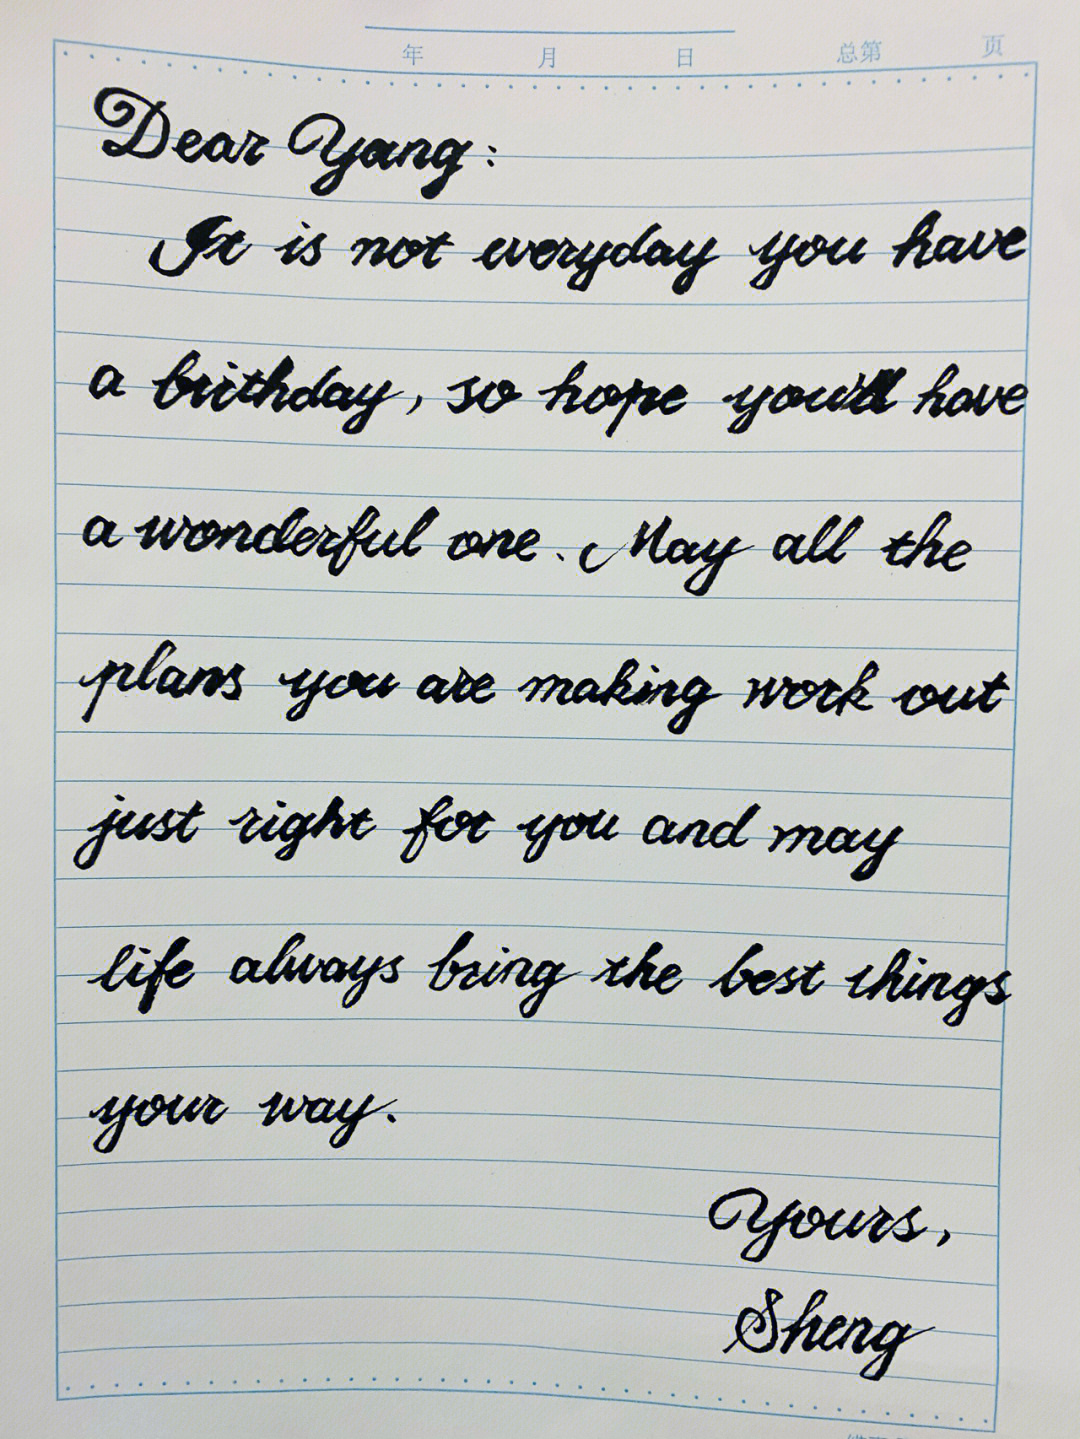 年 月 日 总第 页
Dear Yang:
It is not everyday you have
a brithday, so hope you'll have
a wonderful one. May all the
plans you are making work out
just right for you and may
life always bring the best things
your way.
Yours,
Sheng